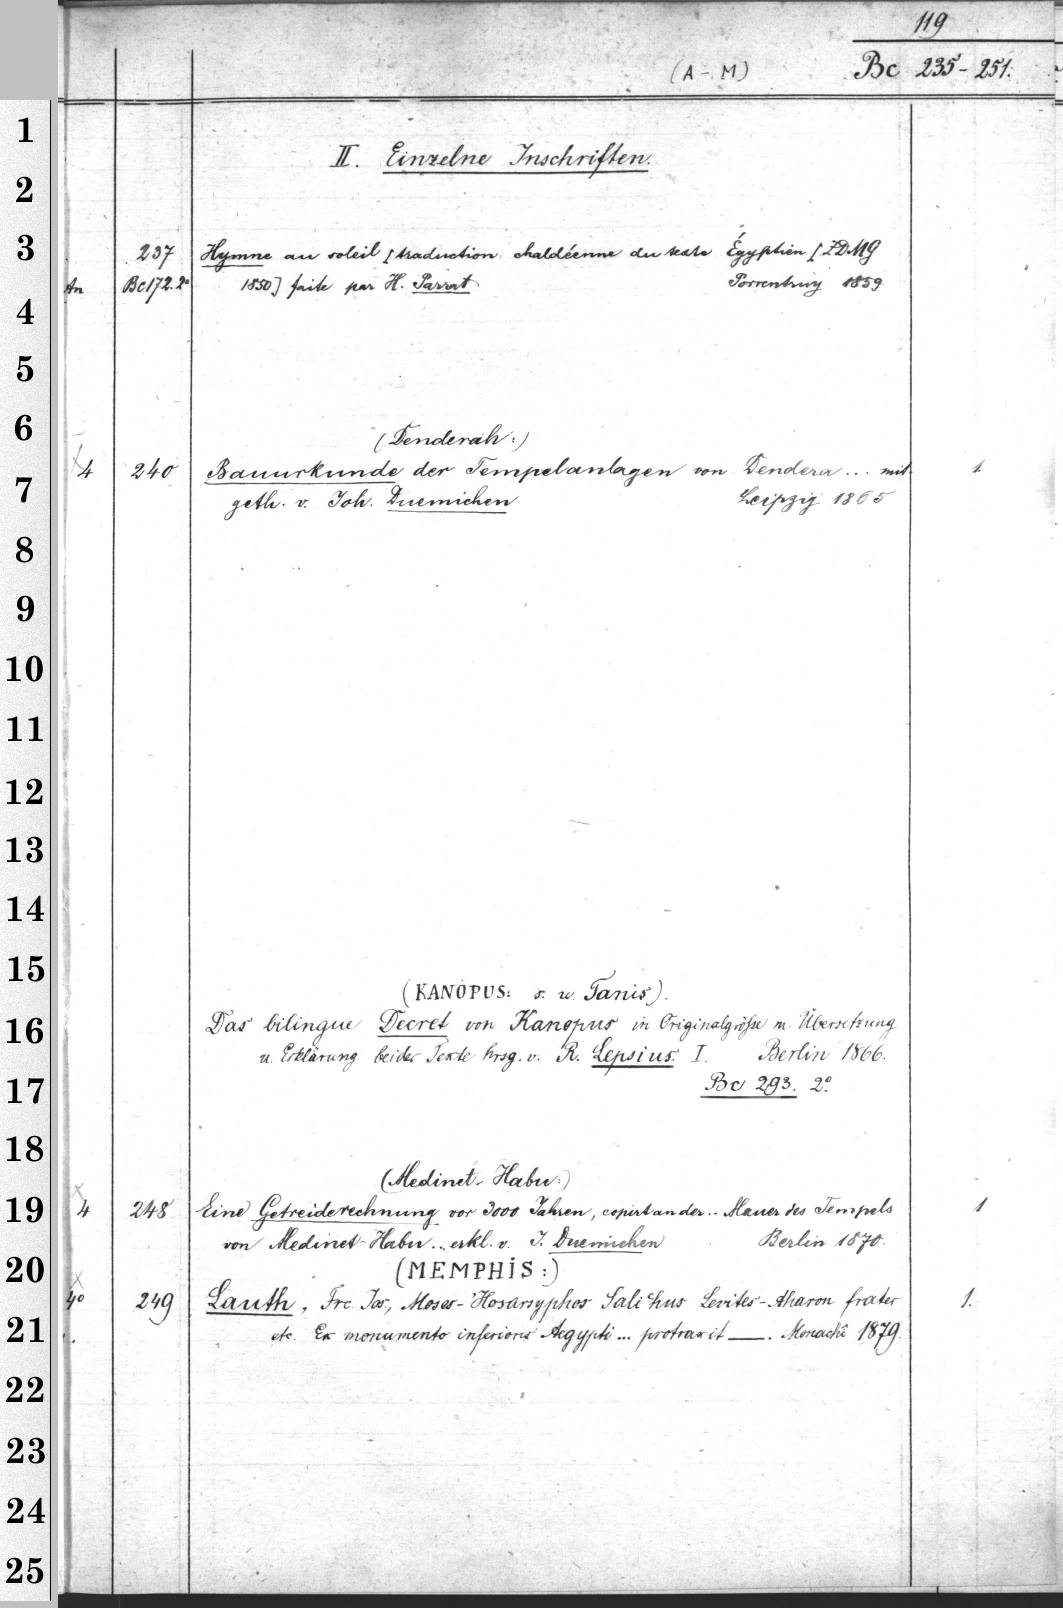 119
(A-M) Bc 235-251.
1
2
3
4
5
6
7
8
9
10
11
12
13
14
15
16
17
18
19
20
21
22
23
24
25
II. Einzelne Inschriften.
237 Hymne au soleil [traduction chaldéenne du texte Égyptien [ZDMG
An Bc172.2° 1850] faite par H. Parrat Porrentruy 1859
(Denderah:)
4 240 Bauurkunde der Tempelanlagen von Dendera ... mit 1
geth. v. Joh. Duemichen Leipzig 1865
(KANOPUS: s. u. Tanis).
Das bilingue Decret von Kanopus in Originalgröße m. Übersetzung
u. Erklärung beider Texte hrsg. v. R. Lepsius. I. Berlin 1866.
Bc 293. 2°
(Medinet-Habu:)
4 248 Eine Getreiderechnung vor 3000 Jahren, copirt an der .. Mauer des Tempels 1
von Medinet-Habu .. erkl. v. J. Duemichen Berlin 1870.
(MEMPHIS:)
4° 249 Lauth, Frc. Jos., Moses-Hosarsyphos Salichus Levites-Aharon frater 1.
etc. Ex monumento inferioris Aegypti ... protraxit —. Monachi 1879.